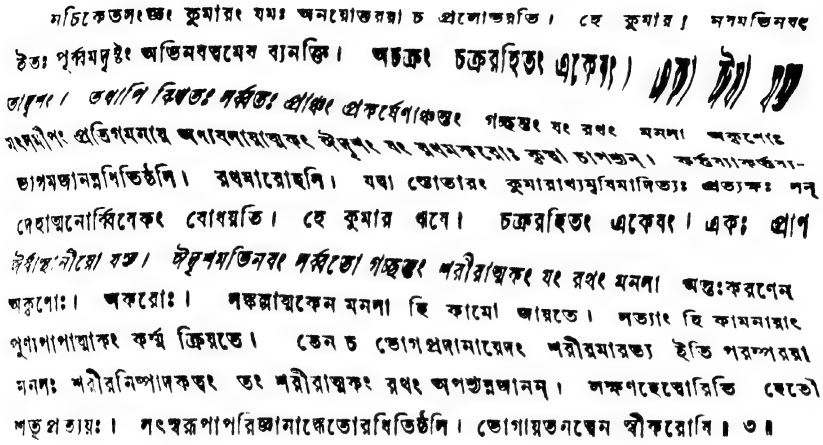 নচিকেতসংজ্ঞং কুমারং যমঃ অনয়োত্তরয়া চ প্রলোভয়তি। হে কুমার ! নবমভিনবং
ইতঃ পূর্ব্বমদৃষ্টং অভিনবত্বমেব ব্যনক্তি। অচক্রং চক্ররহিতং একেষং। একা ঈষা যস্য
তাদৃশং। তথাপি বিশ্বতঃ সর্ব্বতঃ প্রাঞ্চং প্রকর্ষেণাঞ্চন্তং গচ্ছন্তং যং রথং মনসা অকৃণোঃ
মৎসমীপং প্রতিগমনায় অধ্যবসায়াত্মকং ঈদৃশং যং রথমকরোঃ কৃত্বা চাপশ্যন্। কর্ত্তব্যাকর্ত্তব্য-
ভাগমজানন্নধিতিষ্ঠসি। রথমারোহসি। যদ্বা স্তোতারং কুমারাখ্যমৃষিমাদিত্যঃ প্রত্যক্ষঃ সন্
দেহাত্মনোর্ব্বিবেকং বোধয়তি। হে কুমার ঋষে। চক্ররহিতং একেষং। একঃ প্রাণ
ঈষাস্থানীয়ো যস্য। ঈদৃশমভিনবং সর্ব্বতো গচ্ছন্তং শরীরাত্মকং যং রথং মনসা অন্তঃকরণেন
অকৃণোঃ। অকরোঃ। সঙ্কল্পাত্মকেন মনসা হি কামো জায়তে। সত্যাং হি কামনায়াং
পুণ্যপাপাত্মকং কর্ম্ম ক্রিয়তে। তেন চ ভোগপ্রদানায়েদং শরীরমারভ্য ইতি পরম্পরয়া
মনসঃ শরীরনিষ্পাদকত্বং তং শরীরাত্মকং রথং অপশ্যন্নজানন্। লক্ষণহেত্বোরিতি হেতৌ
শতৃপ্রত্যয়ঃ। সৎস্বরূপাপরিজ্ঞানাদ্ধেতোরধিতিষ্ঠসি। ভোগায়তনত্বেন স্বীকরোষি ॥ ৩॥